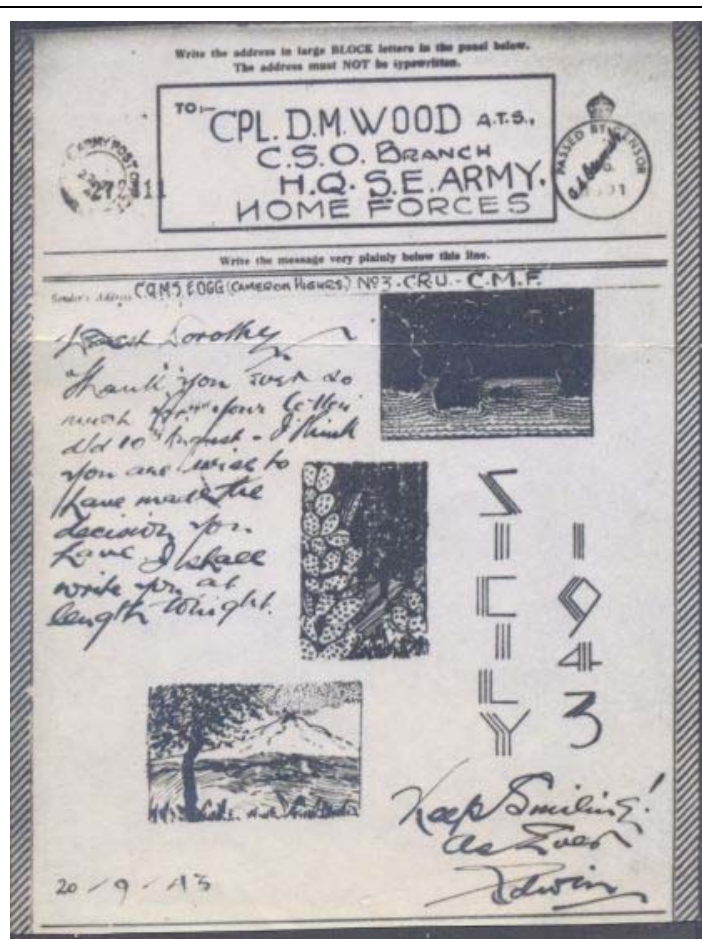 Write the address in large BLOCK letters in the panel below.
The address must NOT be typewritten.
TO:-
CPL. D.M. WOOD A.T.S.,
C.S.O. BRANCH
H.Q. S.E. ARMY.
HOME FORCES
ARMY POST
PASSED BY CENSOR
Write the message very plainly below this line.
Sender's Address C.Q.M.S. E OGG (CAMERON HIGHRS) No 3 - C.R.U. - C.M.F.
Dorothy
Thank you ever so
much for your letter
d/d 10th August - I think
you are wise to
have made the
decision you
have I shall
write you at
length tonight.
SICILY
1943
Keep Smiling!
As Ever
Edwin
20 - 9 - 43